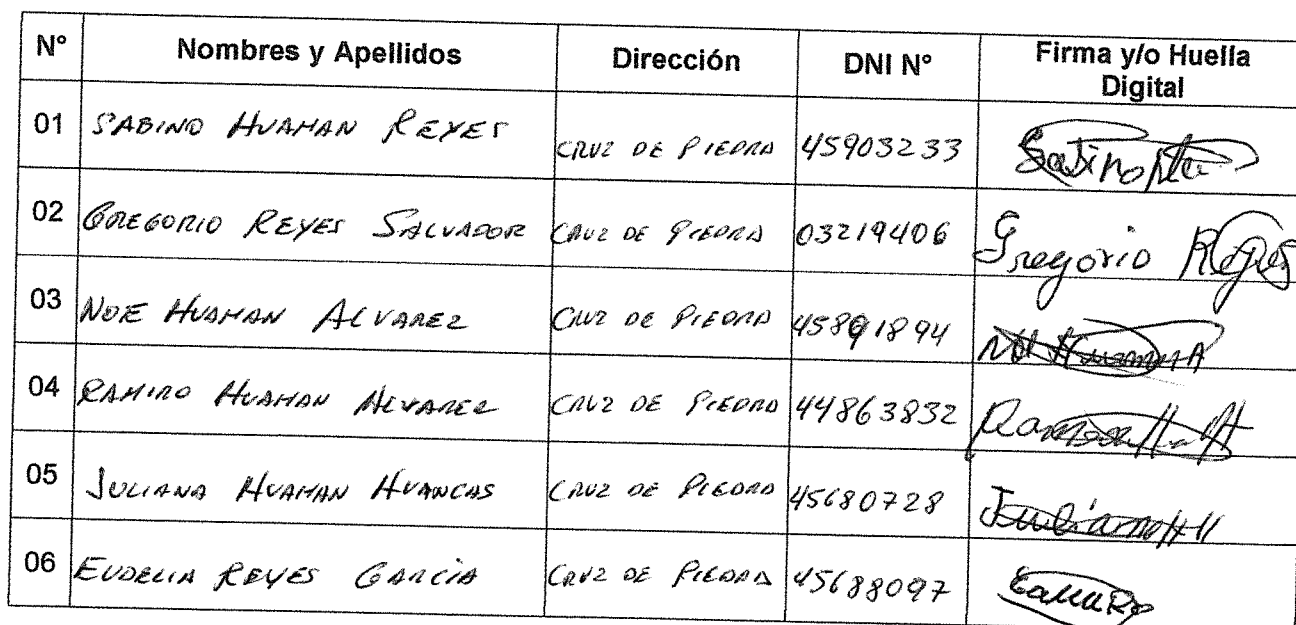 N° Nombres y Apellidos Dirección DNI N° Firma y/o Huella Digital
01 SABINO HUAMAN REYES CRUZ DE PIEDRA 45903233
02 GREGORIO REYES SALVADOR CRUZ DE PIEDRA 03219406 Gregorio Reyes
03 NOE HUAMAN ALVAREZ CRUZ DE PIEDRA 45891894
04 RAMIRO HUAMAN ALVAREZ CRUZ DE PIEDRA 44863832
05 JULIANA HUAMAN HUANCAS CRUZ DE PIEDRA 45680728
06 EUDELIA REYES GARCIA CRUZ DE PIEDRA 45688097